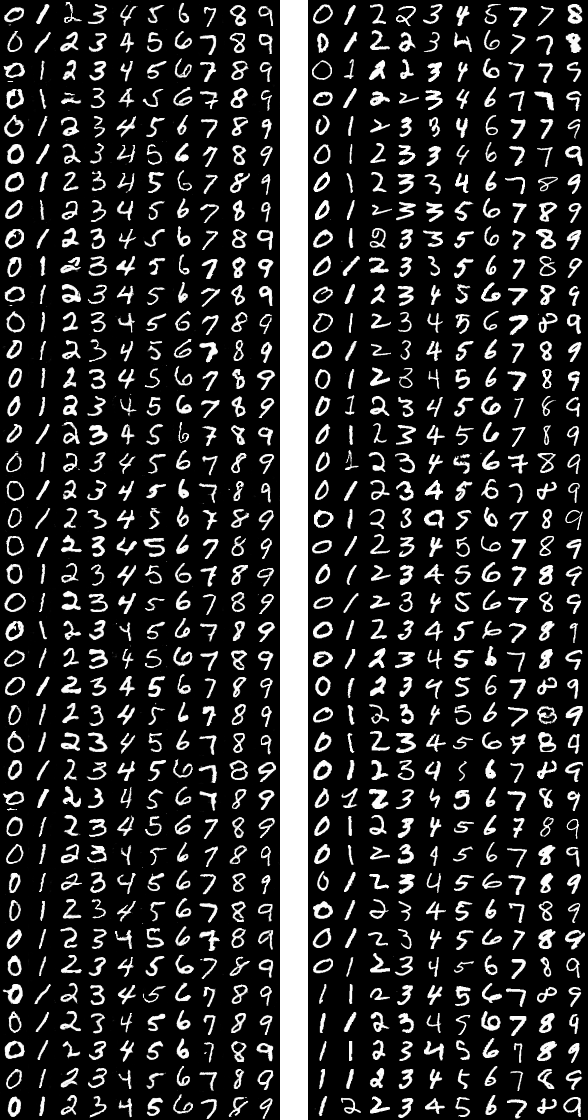 0 1 2 3 4 5 6 7 8 9
0 1 2 3 4 5 6 7 8 9
0 1 2 3 4 5 6 7 8 9
0 1 2 3 4 5 6 7 8 9
0 1 2 3 4 5 6 7 8 9
0 1 2 3 4 5 6 7 8 9
0 1 2 3 4 5 6 7 8 9
0 1 2 3 4 5 6 7 8 9
0 1 2 3 4 5 6 7 8 9
0 1 2 3 4 5 6 7 8 9
0 1 2 3 4 5 6 7 8 9
0 1 2 3 4 5 6 7 8 9
0 1 2 3 4 5 6 7 8 9
0 1 2 3 4 5 6 7 8 9
0 1 2 3 4 5 6 7 8 9
0 1 2 3 4 5 6 7 8 9
0 1 2 3 4 5 6 7 8 9
0 1 2 3 4 5 6 7 8 9
0 1 2 3 4 5 6 7 8 9
0 1 2 3 4 5 6 7 8 9
0 1 2 3 4 5 6 7 8 9
0 1 2 3 4 5 6 7 8 9
0 1 2 3 4 5 6 7 8 9
0 1 2 3 4 5 6 7 8 9
0 1 2 3 4 5 6 7 8 9
0 1 2 3 4 5 6 7 8 9
0 1 2 3 4 5 6 7 8 9
0 1 2 3 4 5 6 7 8 9
0 1 2 3 4 5 6 7 8 9
0 1 2 3 4 5 6 7 8 9
0 1 2 3 4 5 6 7 8 9
0 1 2 3 4 5 6 7 8 9
0 1 2 3 4 5 6 7 8 9
0 1 2 3 4 5 6 7 8 9
0 1 2 3 4 5 6 7 8 9
0 1 2 3 4 5 6 7 8 9
0 1 2 3 4 5 6 7 8 9
0 1 2 3 4 5 6 7 8 9
0 1 2 3 4 5 6 7 8 9
0 1 2 3 4 5 6 7 8 9
0 1 2 2 3 4 5 7 7 8
0 1 2 2 3 4 6 7 7 8
0 1 2 2 3 4 6 7 7 9
0 1 2 2 3 4 6 7 7 9
0 1 2 3 3 4 6 7 7 9
0 1 2 3 3 4 6 7 7 9
0 1 2 3 3 4 6 7 8 9
0 1 2 3 3 5 6 7 8 9
0 1 2 3 3 5 6 7 8 9
0 1 2 3 3 5 6 7 8 9
0 1 2 3 4 5 6 7 8 9
0 1 2 3 4 5 6 7 8 9
0 1 2 3 4 5 6 7 8 9
0 1 2 3 4 5 6 7 8 9
0 1 2 3 4 5 6 7 8 9
0 1 2 3 4 5 6 7 8 9
0 1 2 3 4 5 6 7 8 9
0 1 2 3 4 5 6 7 8 9
0 1 2 3 4 5 6 7 8 9
0 1 2 3 4 5 6 7 8 9
0 1 2 3 4 5 6 7 8 9
0 1 2 3 4 5 6 7 8 9
0 1 2 3 4 5 6 7 8 9
0 1 2 3 4 5 6 7 8 9
0 1 2 3 4 5 6 7 8 9
0 1 2 3 4 5 6 7 8 9
0 1 2 3 4 5 6 7 8 9
0 1 2 3 4 5 6 7 8 9
0 1 2 3 4 5 6 7 8 9
0 1 2 3 4 5 6 7 8 9
0 1 2 3 4 5 6 7 8 9
0 1 2 3 4 5 6 7 8 9
0 1 2 3 4 5 6 7 8 9
0 1 2 3 4 5 6 7 8 9
0 1 2 3 4 5 6 7 8 9
1 1 2 3 4 5 6 7 8 9
1 1 2 3 4 5 6 7 8 9
1 1 2 3 4 5 6 7 8 9
1 1 2 3 4 5 6 7 8 9
1 2 2 3 4 5 6 7 8 9